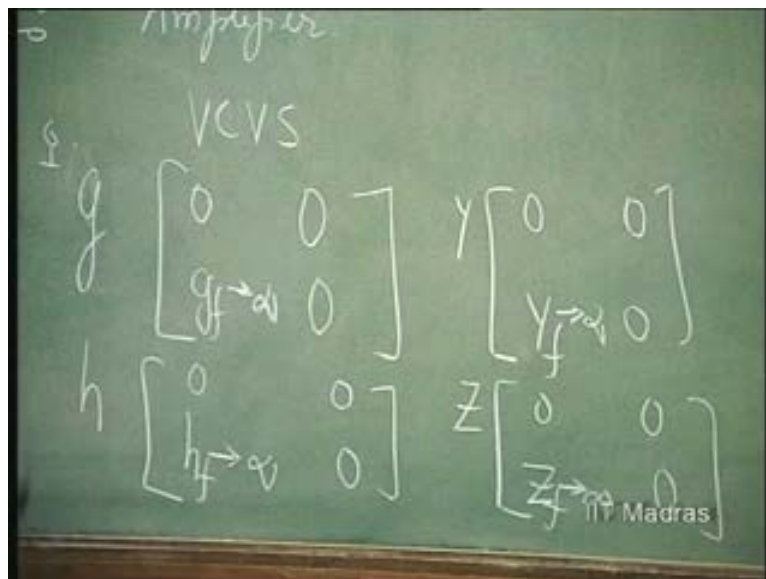 Amplifier
VCVS
g [ 0 0
g_f→∞ 0 ]
Y [ 0 0
Y_f→∞ 0 ]
h [ 0 0
h_f→∞ 0 ]
Z [ 0 0
Z_f→∞ 0 ]
IIT Madras